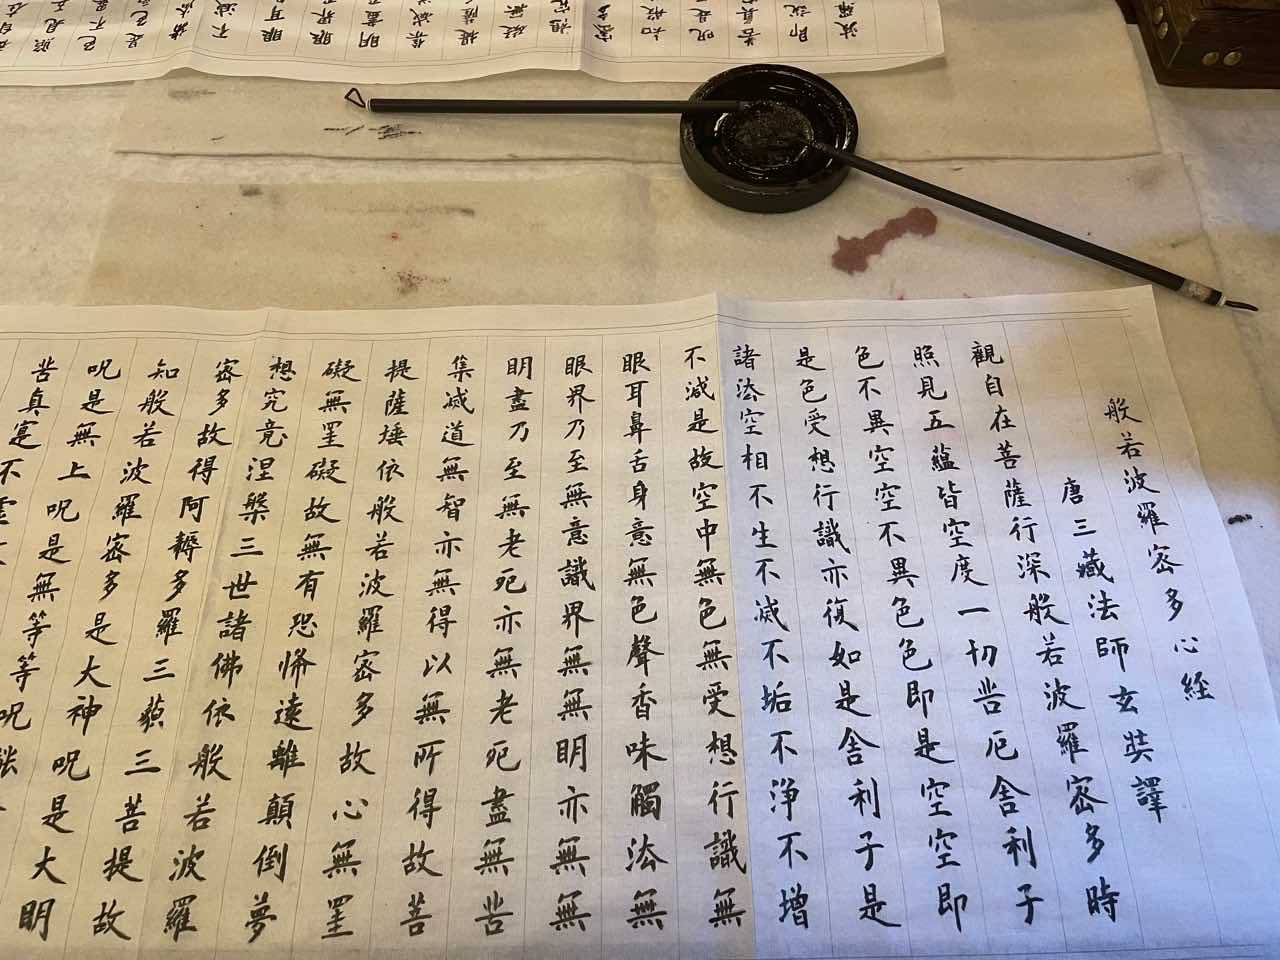 般若波羅密多心経
唐三藏法師玄奘譯
觀自在菩薩行深般若波羅密多時
照見五蘊皆空度一切苦厄舍利子
色不異空空不異色色即是空空即
是色受想行識亦復如是舍利子是
諸法空相不生不滅不垢不淨不增
不減是故空中無色無受想行識無
眼耳鼻舌身意無色聲香味觸法無
眼界乃至無意識界無無明亦無無
明盡乃至無老死亦無老死盡無苦
集滅道無智亦無得以無所得故菩
提薩埵依般若波羅密多故心無罣
礙無罣礙故無有恐怖遠離顛倒夢
想究竟涅槃三世諸佛依般若波羅
密多故得阿耨多羅三藐三菩提故
知般若波羅密多是大神呪是大明
呪是無上呪是無等等呪
苦真寔不虛